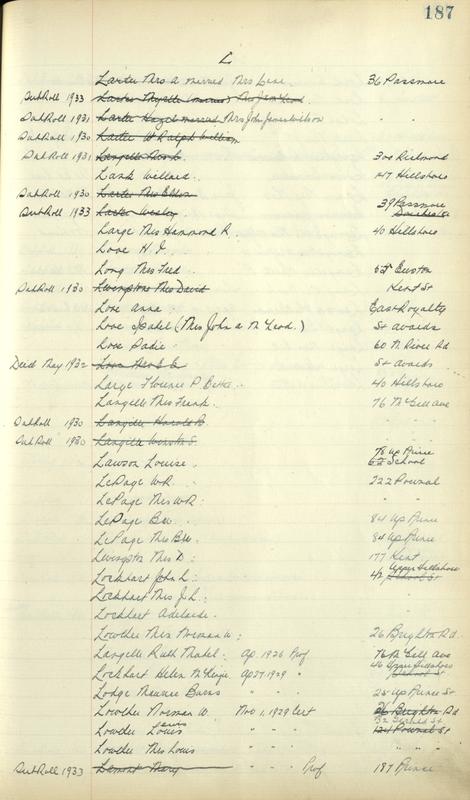 187
L
Larter Mrs A married Mrs Lane 36 Passmore
Out Roll 1933 Larter Myrtle (married) Mrs Jas
Out Roll 1931 Larter Hazel married Mrs John James Wilson " "
Out Roll 1930 Larter W Ralph William
Out Roll 1931 Langille 300 Richmond
Lank Willard 147 Hillsboro
Out Roll 1930 Larter Mrs Eldon
Out Roll 1933 Larter Wesley 39 Passmore
Large Mrs Hammond R 40 Hillsboro
Love H. J.
Long Mrs Fred Euston
Out Roll 1930 Livingstone Mrs David Kent St
Love Anna East Royalty
Love Isabel (Mrs John A McLeod.) St Avards
Love Sadie 60 N. River Rd
Died May 1932 Love St Avards
Large Florence P Betta 40 Hillsboro
Langille Mrs Frank 76 McGill Ave
Out Roll 1930 Langille Harold B " "
Out Roll 1930 Langille S. " "
78 Up Prince
Lawson Louise School
LePage W.R. 222 Pownal
LePage Mrs W.R. " "
LePage B.W. 84 Up Prince
LePage Mrs B.W. 84 Up Prince
Livingston Mrs D. 177 Kent
Lockhart John L. 42 School St Upper Hillsboro
Lockhart Mrs J.L.
Lockhart Adelaide
Lowther Mrs Norman W. 26 Brighton Rd.
Langille Ruth Mabel Ap. 1926 Prof 76 McGill Ave
Lockhart Helen McKenzie Ap 27 1929 " 46 Upper Hillsboro School St
Lodge Maurice Burns " " " 25 Up Prince St
Lowther Norman W. Nov 1, 1929 Cert 26 Brighton Rd
Lowther Louis Lewis " " " 124 Pownal St
Lowther Mrs Louis " " " " " "
Out Roll 1933 Lamont Mary " " Prof 187 Prince